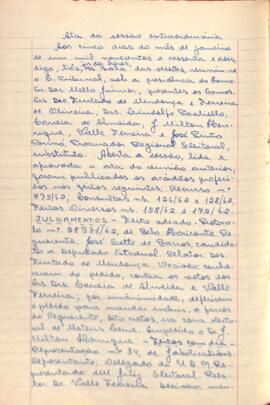 Ata da sessão extraordinária
Aos cinco dias do mês de janeiro
de um mil novecentos e sessenta e dois,
digo, três, na sala das sessões, reuniu-se
o E. Tribunal, sob a presidência do Exmo.
Sr. Des. Mello Júnior, presentes os Exmos.
Srs. Des. Furtado de Mendonça e Ferreira
de Oliveira, Drs. Lindolfo Paoliello,
de Almeida, J. Milton Hen-
rique, Valle Ferreira e José Pinto
Procurador Regional Eleitoral,
substituto. Aberta a sessão, lida e
aprovada a ata da reunião anterior,
foram publicados os acórdãos proferi-
dos nos feitos seguintes: Recurso nº
973/62, Consultas ns. 126/62 e 128/62,
Feitos Diversos ns. 158/62 e 172/62.
JULGAMENTOS - Feito adiado - Proto-
colo nº 28731/62, de Belo Horizonte. Re-
querente: José Sette de Barros, candida-
to a Deputado Estadual. Relator: Des.
Furtado de Mendonça. Decisão: conhe-
ceram do pedido, contra os votos dos
Srs. Drs. de Almeida e Valle
Ferreira; por unanimidade, deferiram
o pedido para mandar incluir, a favor
do Requerente, oito votos, na zona eleito-
ral de Mateus Leme. Impedido o Dr. J.
Milton Henrique. - Feitos com dia -
Representação nº 34, de Jaboticatubas.
Representante: Delegado da U.D.N. Re-
presentado: MM. Juiz Eleitoral. Rela-
tor: Dr. Valle Ferreira. Decisão: